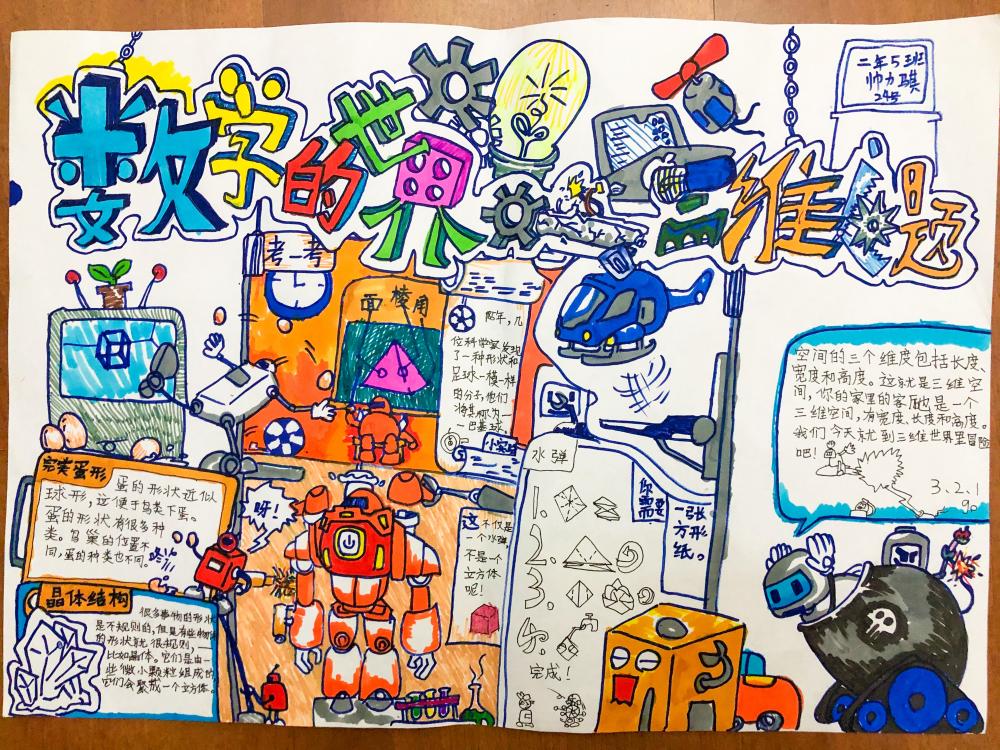 数学的世界
三维问题
二年5班
帅力骐
24号
考一考
面棱角
昨年，几
位科学家发现
了一种形状和
足球一模一样
的分子，他们
将其称为一
巴基球。
小实验
空间的三个维度包括长度、
宽度和高度。这就是三维空
间，你的家里的客厅也是一个
三维空间，有宽度、长度和高度。
我们今天就到三维世界里冒险
吧！
3.2.1
go
完美蛋形
蛋的形状近似
球形，这便于鸟类下蛋。
蛋的形状有很多种
类。鸟巢的位置不
同，蛋的种类也不同。
呀！
晶体结构
很多事物的形状
是不规则的，但是有些物体
的形状就很规则，
比如晶体。它们是由一
些微小颗粒组成的
它们会聚成一个立方体。
这不仅是
一个水弹，
不是一个
立方体
呢！
水弹
你需要
一张方形纸。
1.
2.
3.
完成！